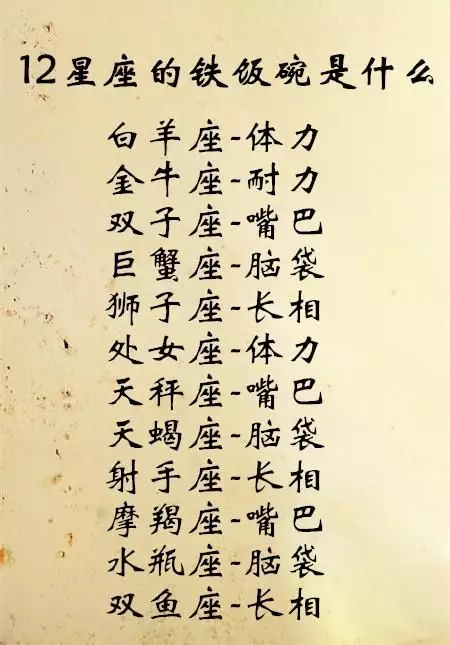 12星座的铁饭碗是什么
白羊座-体力
金牛座-耐力
双子座-嘴巴
巨蟹座-脑袋
狮子座-长相
处女座-体力
天秤座-嘴巴
天蝎座-脑袋
射手座-长相
摩羯座-嘴巴
水瓶座-脑袋
双鱼座-长相